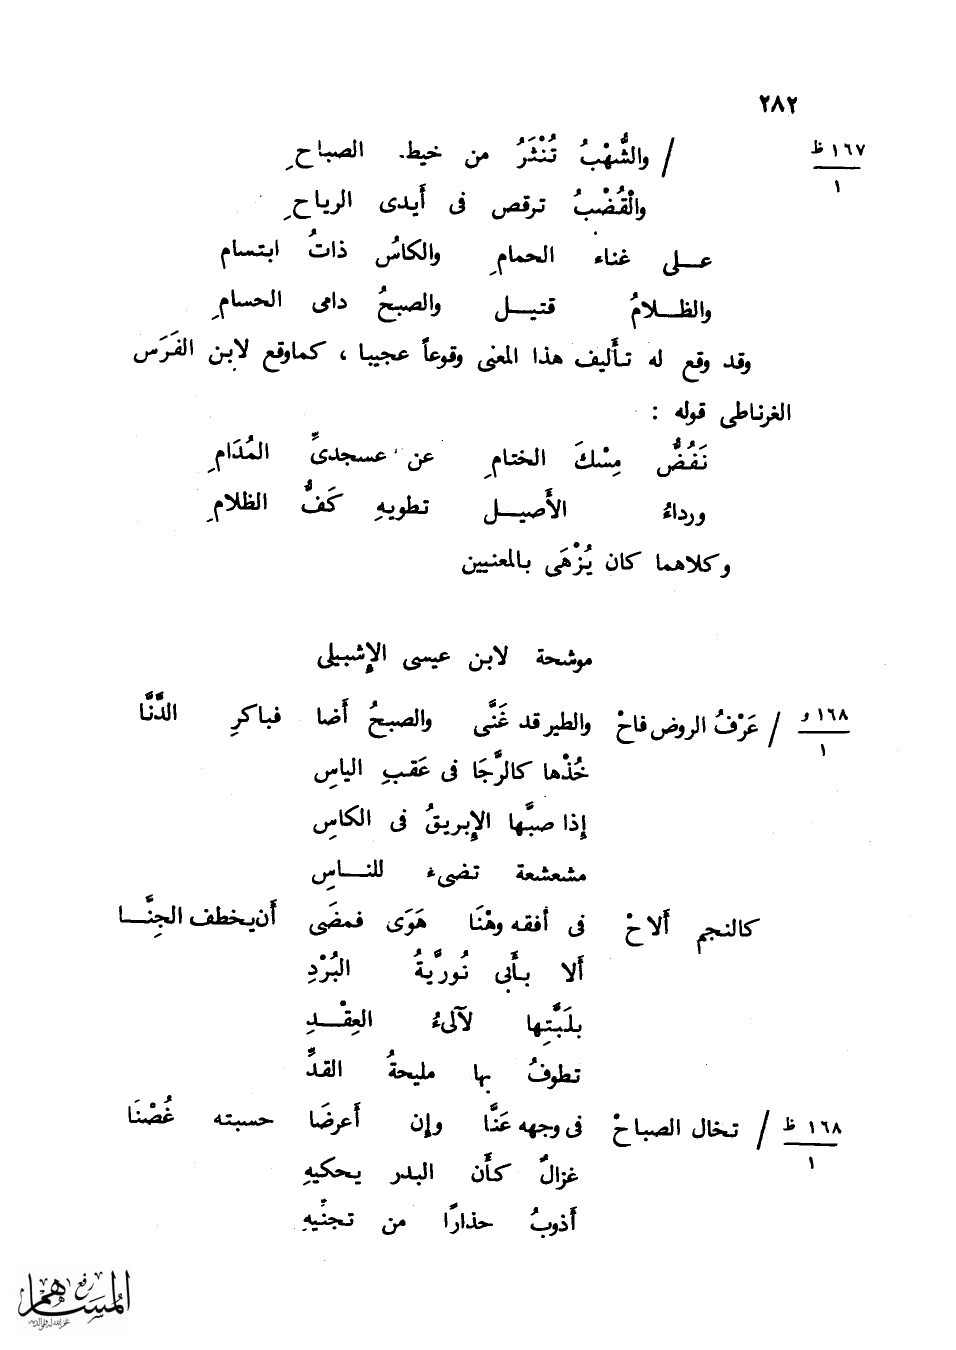 ٢٨٢
١٦٧ ظ / والشُّهْبُ تُنْثَرُ من خيط الصباحِ
١
والْقُضْبُ ترقص فى أَيدى الرياحِ
على غناء الحمامِ والكاسُ ذاتُ ابتسام
والظلامُ قتيل والصبحُ دامى الحسامِ
وقد وقع له تأَليف هذا المعنى وقوعاً عجيبا ، كماوقع لابن الفَرَس
الغرناطى قوله :
نَفُضُّ مِسْكَ الختامِ عن عسجدىِّ المُدَامِ
ورداءُ الأَصيل تطويهِ كَفُّ الظلامِ
وكلاهما كان يُزْهَى بالمعنيين
موشحة لابن عيسى الإشبيلى
١٦٨ و / عَرْفُ الروض فاحْ والطير قد غَنَّى والصبحُ أَضا فباكرِ الدَّنَّا
١
خُذْها كالرَّجَا فى عَقبِ الياسِ
إذا صبَّها الإبريقُ فى الكاسِ
مشعشعة تضىء للناسِ
كالنجم أَلاحْ فى أفقه وهْنَا هَوَى فمضَى أَن يخطف الجِنَّا
أَلا بأَبى نُوريَّةُ البُرْدِ
بلَبَّتِها لآلىءُ العِقْدِ
تطوفُ بها مليحةُ القدِّ
١٦٨ ظ / تخال الصباحْ فى وجهه عَنَّا وإن أَعرضَا حسبته غُصْنَا
١
غزالٌ كأَن البدر يحكيهِ
أَذوبُ حذارًا من تجنِّيهِ
رفع
المساهم